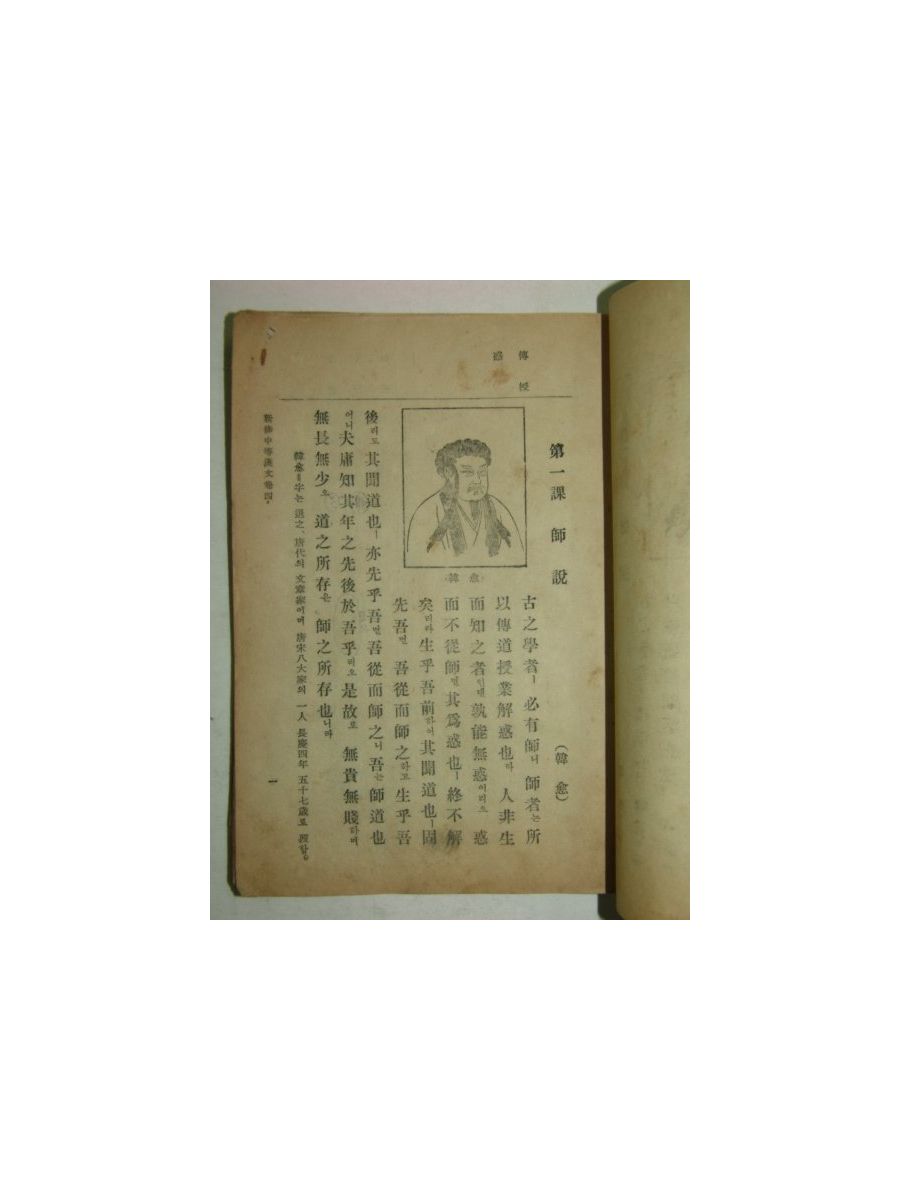 傳授
惑
第一課 師說
(韓愈)
古之學者ㅣ 必有師니 師者는 所
以傳道授業解惑也라 人非生
而知之者인대 孰能無惑이리오 惑
而不從師면 其爲惑也ㅣ 終不解
矣리라 生乎吾前하여 其聞道也ㅣ 固
先吾면 吾從而師之하고 生乎吾
(韓愈)
後라도 其聞道也ㅣ 亦先乎吾면 吾從而師之니 吾는 師道也
어니 夫庸知其年之先後於吾乎리오 是故로 無貴無賤하며
無長無少오 道之所存은 師之所存也니라
韓愈=字는 退之、唐代의 文章家이며 唐宋八大家의 一人 長慶四年 五十七歲로 歿함。
新修中等漢文卷四。
一